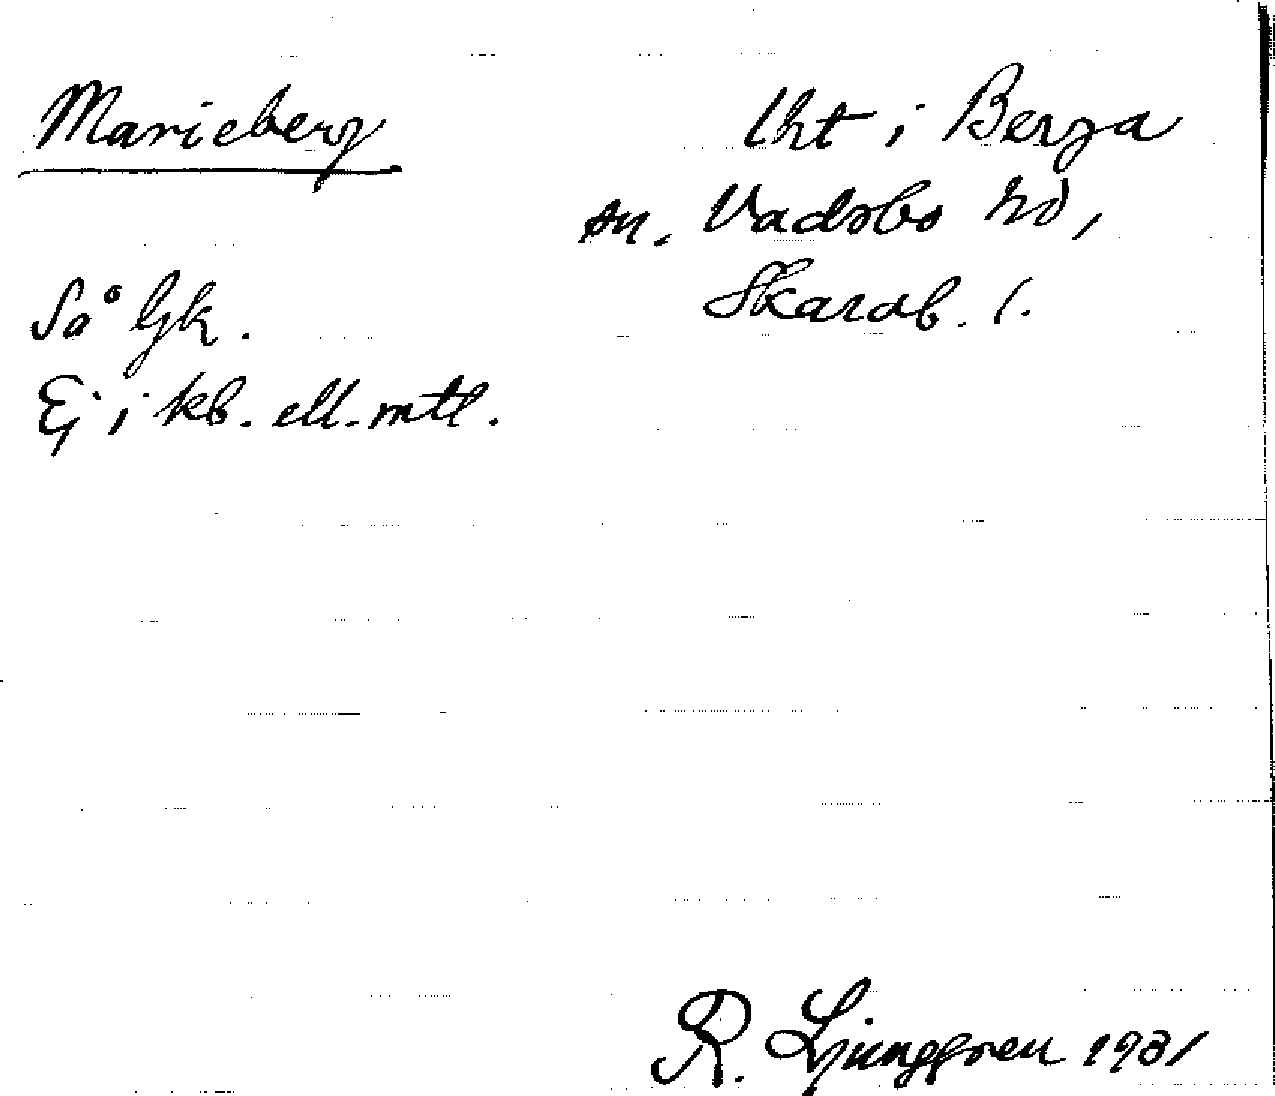 Marieberg
lht i Berga
sn. Vadsbo hd,
Skarab. l.
Så Gk.
Ej i kb. ell. mtl.
R. Ljunggren 1931